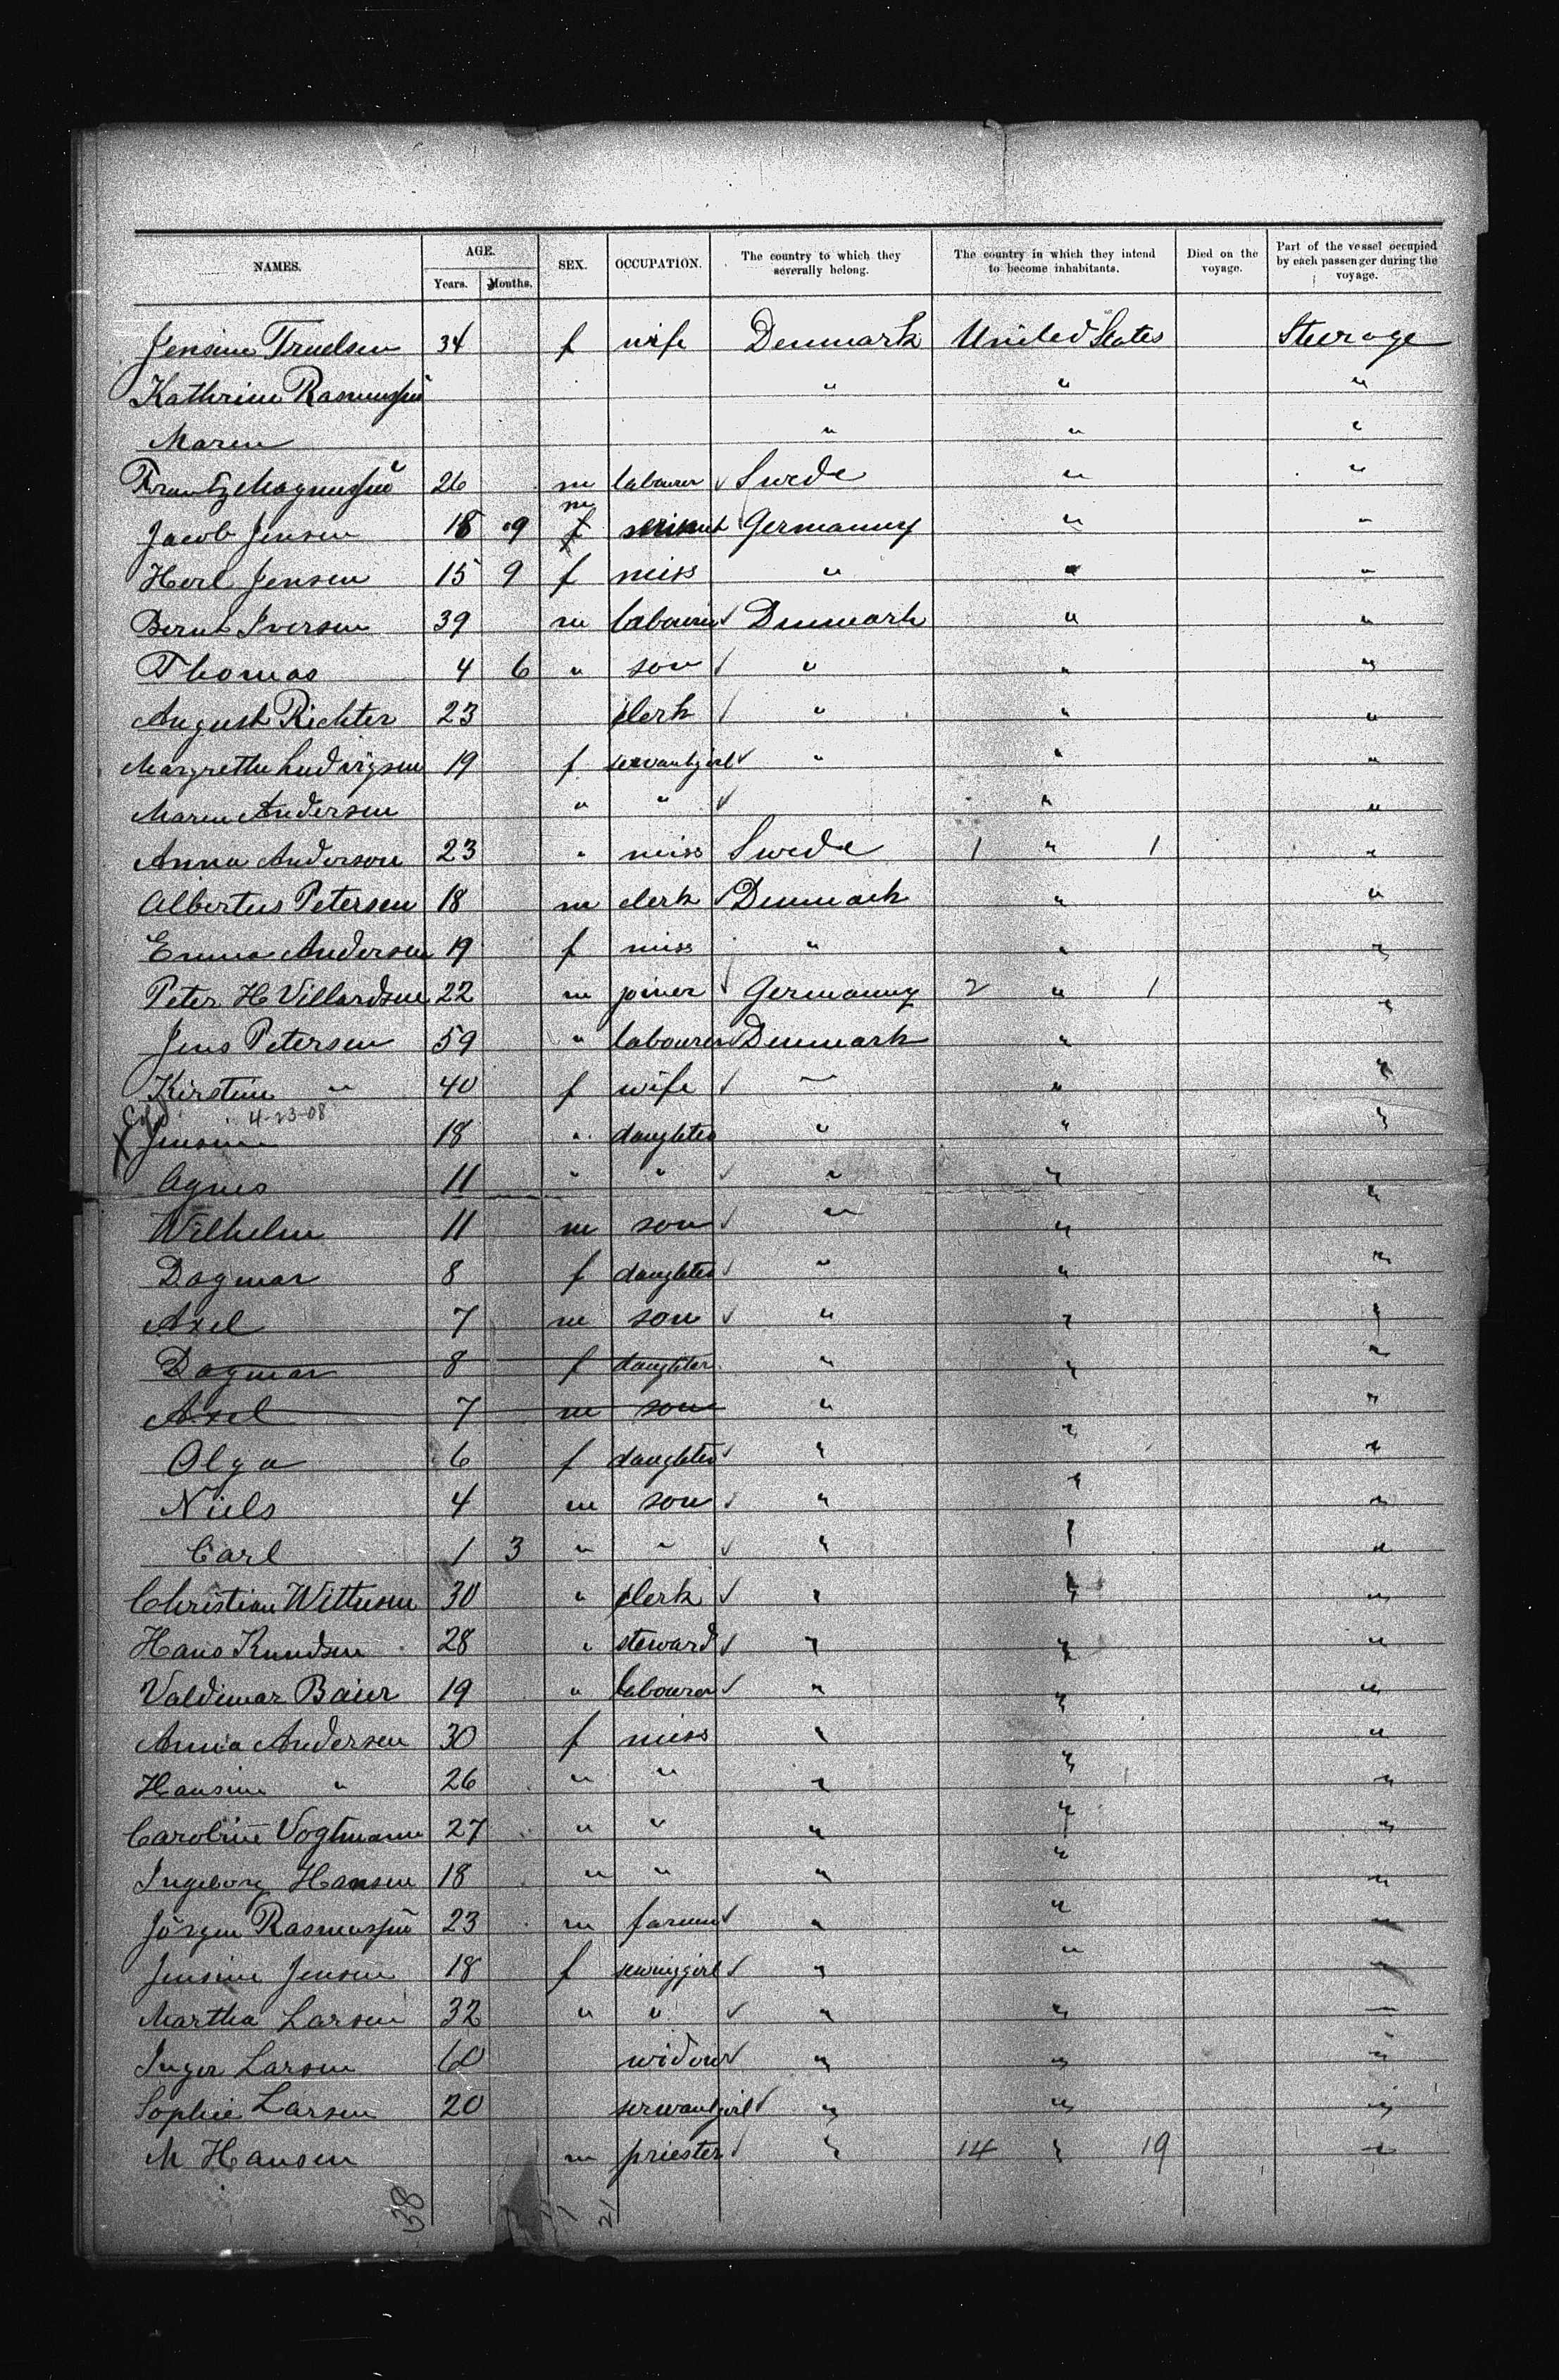 NAMES. AGE. SEX. OCCUPATION. The country to which they severally belong. The country in which they intend to become inhabitants. Died on the voyage. Part of the vessel occupied by each passenger during the voyage.
Years. Months.
Jensine Truelsen 34 f wife Denmark United States Steerage
Kathrine Rasmussen " " "
Maren " " "
Frantz Magnussen 26 m labourer √ Swede " "
Jacob Jensen 18 9 m f Germanny " "
Jensen 15 9 f miss " " "
Bernt Iversen 39 m labourer √ Denmark " "
Thomas 4 6 " son √ " " "
August Richter 23 clerk √ " " "
Margrethe Ludvigsen 19 f servantgirl √ " " "
Maren Andersen " " √ " "
Anna Anderson 23 " miss Swede 1 " 1 "
Albertus Petersen 18 m clerk √ Denmark " "
Emma Andersen 19 f miss " " "
Peter H Villardsen 22 m joiner √ Germanny 2 " 1 "
Jens Petersen 59 " labourer √ Denmark " "
Kirstine " 40 f wife √ — " "
4-23-08
X Jensine 18 " daughter " " "
Agnes 11 " " √ " " "
Wilhelm 11 m son √ " " "
Dagmar 8 f daughter √ " " "
Axel 7 m son √ " " "
Dagmar 8 f daughter " " "
Axel 7 m son " " "
Olga 6 f daughter √ " " "
Niels 4 m son √ " " "
Carl 1 3 " " √ " " "
Christian Wittusen 30 " clerk √ " " "
Hans Knudsen 28 " steward √ " " "
Valdimar Baier 19 " labourer √ " " "
Anna Andersen 30 f miss " " "
Hansine " 26 " " " " "
Caroline Vogtmann 27 " " " " "
Ingeborg Hansen 18 " " " " "
Jörgen Rasmussen 23 m farmer √ " " "
Jensine Jensen 18 f sewinggirl √ " " "
Martha Larsen 32 " " √ " " —
Inger Larsen 60 widow √ " " "
Sophie Larsen 20 servantgirl √ " " "
M Hansen m priester √ " 14 " 19 "
38 21